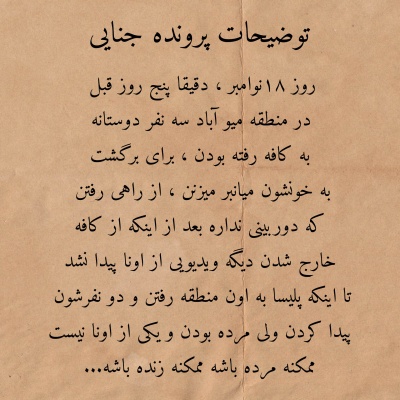 توضیحات پرونده جنایی
روز ۱۸نوامبر ، دقیقا پنج روز قبل
در منطقه میو آباد سه نفر دوستانه
به کافه رفته بودن ، برای برگشت
به خونشون میانبر میزنن ، از راهی رفتن
که دوربینی نداره بعد از اینکه از کافه
خارج شدن دیگه ویدیویی از اونا پیدا نشد
تا اینکه پلیسا به اون منطقه رفتن و دو نفرشون
پیدا کردن ولی مرده بودن و یکی از اونا نیست
ممکنه مرده باشه ممکنه زنده باشه...